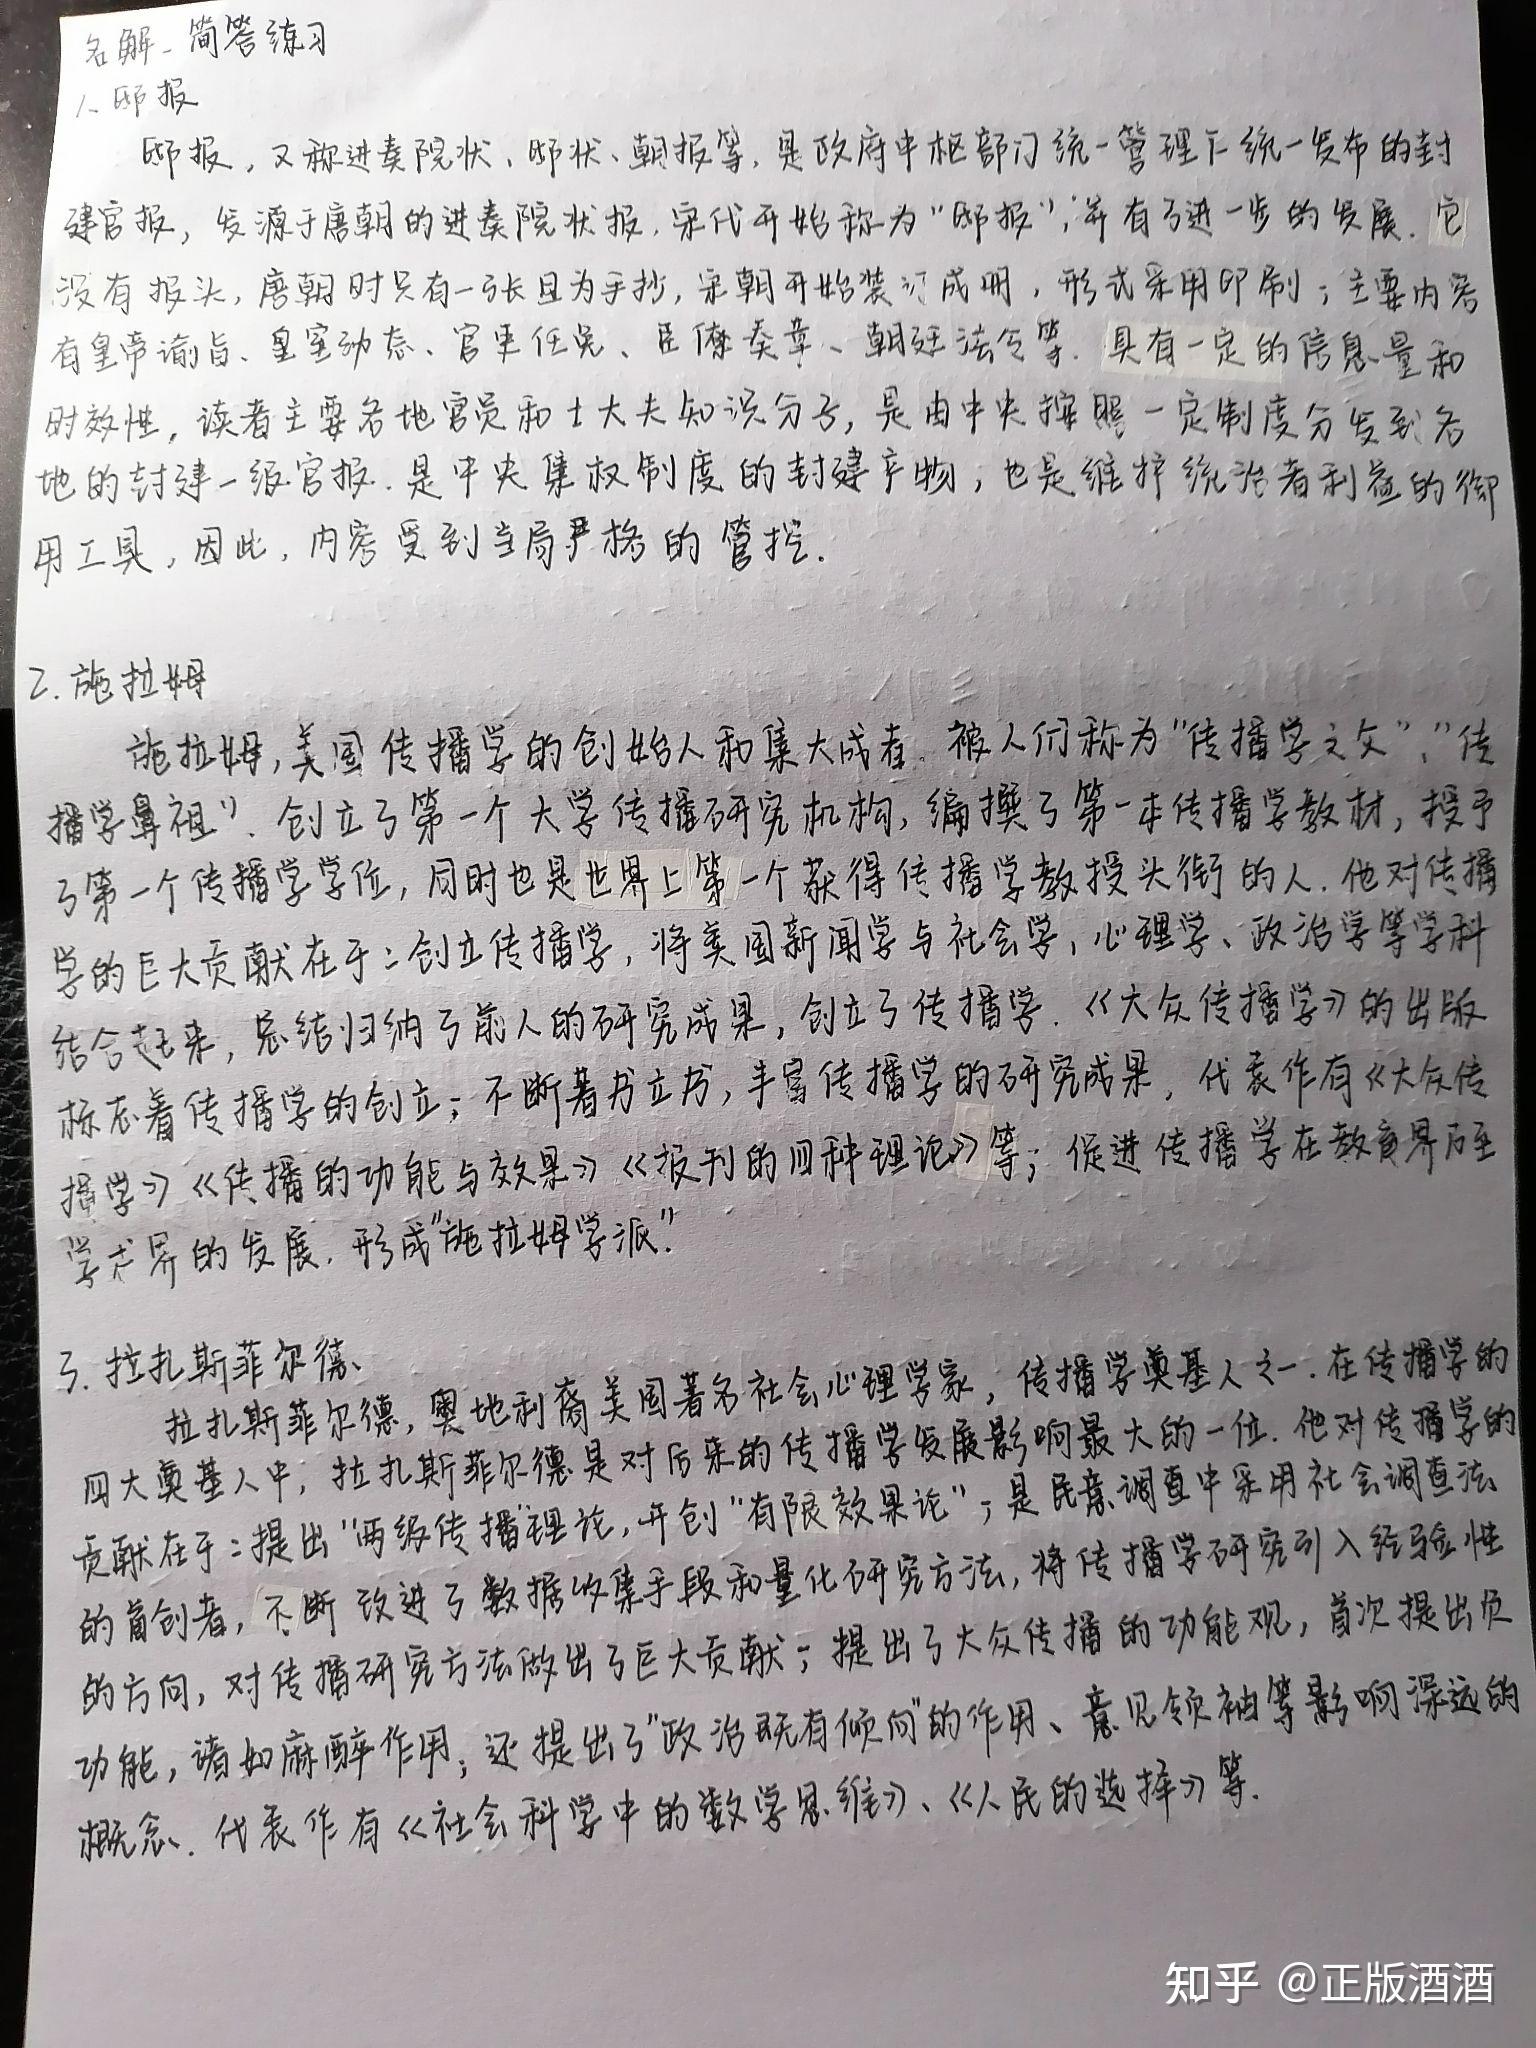 名解_简答练习
1、邸报
邸报，又称进奏院状、邸状、朝报等，是政府中枢部门统一管理下统一发布的封
建官报，发源于唐朝的进奏院状报.宋代开始称为“邸报”，并有了进一步的发展.它
没有报头，唐朝时只有一张且为手抄，宋朝开始装订成册，形式采用印刷；主要内容
有皇帝谕旨、皇室动态、官吏任免、臣僚奏章、朝廷法令等.具有一定的信息量和
时效性，读者主要各地官员和士大夫知识分子，是由中央按照一定制度分发到各
地的封建一级官报.是中央集权制度的封建产物；也是维护统治者利益的御
用工具，因此，内容受到当局严格的管控.
2.施拉姆
施拉姆，美国传播学的创始人和集大成者.被人们称为“传播学之父”、“传
播学鼻祖”.创立了第一个大学传播研究机构，编撰了第一本传播学教材，授予
了第一个传播学学位，同时也是世界上第一个获得传播学教授头衔的人.他对传播
学的巨大贡献在于：创立传播学，将美国新闻学与社会学，心理学、政治学等学科
结合起来，总结归纳了前人的研究成果，创立了传播学.《大众传播学》的出版
标志着传播学的创立；不断著书立书，丰富传播学的研究成果，代表作有《大众传
播学》《传播的功能与效果》《报刊的四种理论》等；促进传播学在教育界乃至
学术界的发展.形成“施拉姆学派”.
3.拉扎斯菲尔德、
拉扎斯菲尔德，奥地利裔美国著名社会心理学家，传播学奠基人之一.在传播学的
四大奠基人中，拉扎斯菲尔德是对后来的传播学发展影响最大的一位.他对传播学的
贡献在于：提出“两级传播”理论，开创“有限效果论”；是民意调查中采用社会调查法
的首创者，不断改进了数据收集手段和量化研究方法，将传播学研究引入经验性
的方向，对传播研究方法做出了巨大贡献；提出了大众传播的功能观，首次提出负
功能，诸如麻醉作用；还提出了“政治既有倾向”的作用、意见领袖等影响深远的
概念.代表作有《社会科学中的数学思维》、《人民的选择》等.
知乎 @正版酒酒